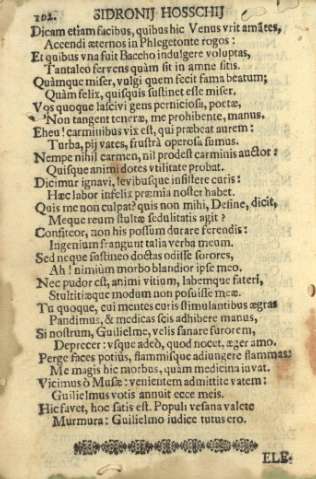 102. SIDRONIJ HOSSCHIJ
Dicam etiam facibus, quibus hic Venus vrit amãtes,
Accendi æternos in Phlegetonte rogos:
Et quibus vna fuit Baccho indulgere voluptas,
Tantaleo fervens quàm sit in amne sitis.
Quàmque miser, vulgi quem fecit fama beatum;
Quàm felix, quisquis sustinet esse miser.
Vos quoque lascivi gens perniciosa, poetæ,
Non tangent teneræ, me prohibente, manus.
Eheu! carminibus vix est, qui præbeat aurem:
Turba, pij vates, frustrà operosa sumus.
Nempe nihil carmen, nil prodest carminis auctor:
Quisque animi dotes vtilitate probat.
Dicimur ignavi, levibusque insistere curis:
Hæc labor infelix præmia noster habet.
Quis me non culpat? quis non mihi, Desine, dicit,
Meque reum stultæ sedulitatis agit?
Confiteor, non his possum durare ferendis:
Ingenium frangunt talia verba meum.
Sed neque sustineo doctas odisse sorores,
Ah! nimiùm morbo blandior ipse meo.
Nec pudor est, animi vitium, labemque fateri,
Stultitiæque modum non posuisse meæ.
Tu quoque, cui mentes curis stimulantibus ægras
Pandimus, & medicas scis adhibere manus,
Si nostrum, Guilielme, velis sanare furorem,
Deprecor: vsque adeò, quod nocet, æger amo.
Perge faces potiùs, flammisque adiungere flammas:
Me magis hic morbus, quàm medicina iuvat.
Vicimus ô Musæ: venientem admittite vatem:
Guilielmus votis annuit ecce meis.
Hic favet, hoc satis est. Populi vesana valete
Murmura: Guilielmo iudice tutus ero.
ELE-